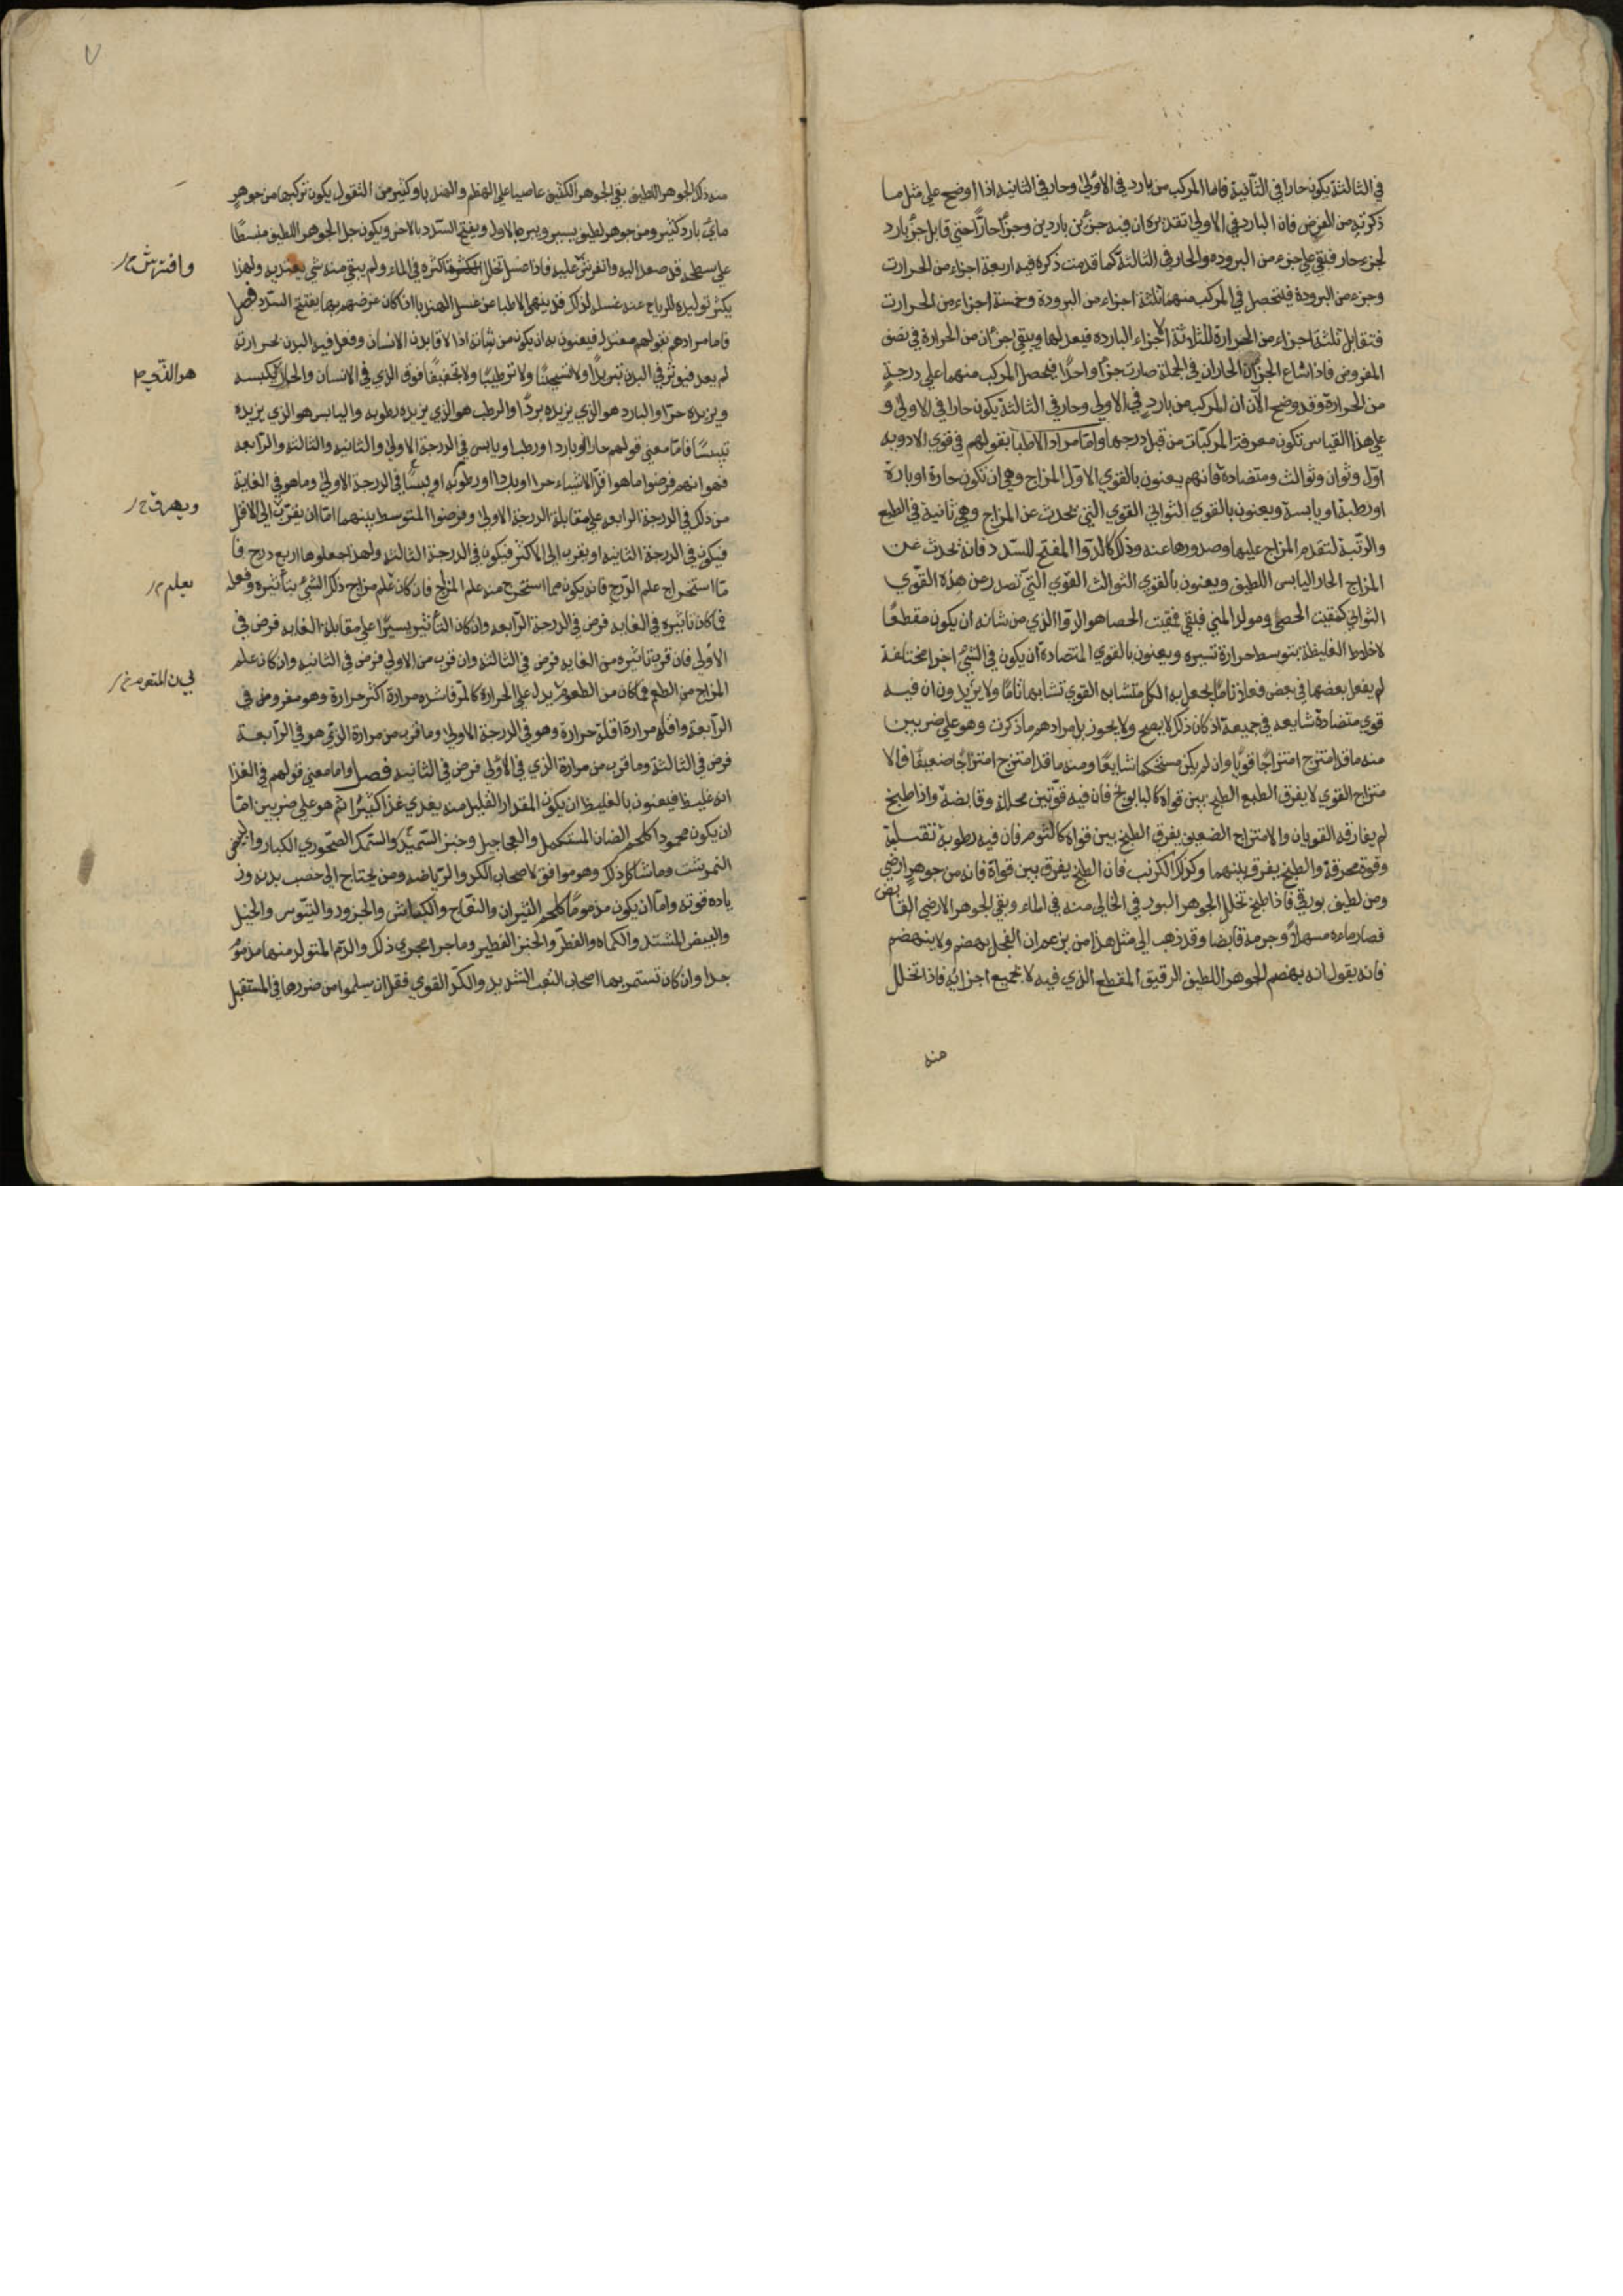 في الثالثة يكون حارا في الثانية فاما المركب من بارد في الاولى وحار في الثانية اذا اوضح على مثل ما
ذكرته من الفرض فان البارد في الاولى تقديره ان فيه جزئين باردين وجزأ حارًا حتى قابل جزء بارد
لجزء حار فبقي على جزء من البرودة والحار في الثالثة كما قدمت ذكره فيه اربعة اجزاء من الحرارت
وجزء من البرودة فيتحصل في المركب منهما ثلثة اجزاء من البرودة وخمسة اجزاء من الحرارت
فتقابل ثلثة اجزاء من الحرارة للثلوثة الاجزاء البارده فيعدلها ويبقي جزءان من الحرارة في نصف
المفروض فاذا شاع الجزآن الحاران في الجملة صارت جزأ واحدًا فيحصل المركب منهما على درجةٍ
من الحرارة وقد وضح الآن ان المركب من باردٍ في الاولى وحار في الثالثة يكون حارا في الاولى و
على هذا القياس تكون معرفة المركبات من قبل درجها واما مراد الاطبا بقولهم في قوى الادويه
اول وثوان وثوالث ومتضادة فانهم يعنون بالقوي الاول المزاج وهي ان تكون حارة او باردة
او رطبة او يابسة ويعنون بالقوي الثواني القوي التي تحدث عن المزاج وهي ثانية في الطبع
والرتبة لتقدم المزاج عليها وصدورها عنه وذلك كالدوا المفتح للسدد فانه تحدث عن
المزاج الحار اليابس اللطيف ويعنون بالقوي الثوالث القوي التي تصدر من هذه القوي
الثواني كمفتت الحصى ومولد المني فبقي مفتت الحصا هو الدوا الذي من شانه ان يكون مقطعًا
لاخلاط الغليظة بتوسط حرارة تسيره ويعنون بالقوي المتضادة ان يكون في الشئ اجزا مختلفة
لم يفعل بعضها في بعض فعلا تامًا يجعل به الكل متشابه القوي تشابها تامًا ولا يريدون ان فيه
قوي متضادة شايعه في جميعه اذ كان ذلك لا يصح ولا يجوز بل مرادهم ما ذكرت وهو على ضربين
منه ما قد امتزج امتزاجًا قويًا وان لم يكن مستحكما شايعًا ومنه ما قد امتزج امتزاجًا ضعيفًا فالا
متزاج القوي لا يفرق الطبع الطبخ بين قواه كالبابونج فان فيه قوتين محللة وقابضة واذا طبخ
لم يفارقه القويان والامتزاج الضعيف يفرق الطبخ بين قواه كالثوم فان فيه رطوبة تقسلة
وقوة محرقة والطبخ يفرق بينهما وكذلك الكرنب فان الطبخ يفرق بين قواة فانه من جوهرٍ ارضي
ومن لطيف بورقي فاذا طبخ تخلل الجوهر البورقي الخالي منه في الماء وبقي الجوهر الارضي القابض
فصار ماءه مسهلًا وجرمة قابضا وقد ذهب الى مثل هذا من بن عمران الفجل يهضم ولا ينهضم
فانه يقول انه يهضم الجوهر اللطيف الرقيق المقطع الذي فيه لا بجميع اجزائه فاذا تخلل
منه
٧
منه ذلك الجوهر اللطيف بقي الجوهر الكثيف عاصيا على الهظم والهندبا وكثير من البقول يكون تركيبها من جوهرٍ
مائي بارد كثير ومن جوهر لطيف يسير ويبرد بالاول ويفتح السدد بالاخر ويكون جل الجوهر اللطيف منبسطًا
على سطحه قد صعد اليه وانفرش عليه فاذا غسل تخلل اكثره في الماء ولم يبقي منه شي يعتد به ولهذا
يكثر توليده للرياح عند غسله لذلك قد ينهى الاطبا عن غسل الهندبا ان كان غرضهم بها يفتح السدد فصل
فاما مرادهم بقولهم معتدل فيعنون به ان يكون من شانه اذا لاقا بدن الانسان وفعل فيه البدن بحرارته
لم يعد فيوثر في البدن تبريدًا ولا تسخينًا ولا ترطيبًا ولا تجفيفًا فوق الذي في الانسان والحار يكسبه
ويزيده حرا والبارد هو الذي يزيده بردًا والرطب هو الذي يزيده رطوبه واليابس هو الذي يزيده
تيبسًا فاما معني قولهم حارا او باردا او رطبا او يابس في الدرجة الاولى والثانيه والثالثة والرابعه
فهو انهم فرضوا ما هو اقل الاشياء حرا او بردا او رطوبة او يبسًا في الدرجة الاولى وما هو في الغاية
من ذلك في الدرجة الرابعه على مقابلة الدرجة الاولى وفرضوا المتوسط بينهما اما ان يقرب الى الاقل
فيكون في الدرجة الثانيه او يقرب الى الاكثر فيكون في الدرجة الثالثه ولهذا جعلوها اربع درج فا
ما استخراج علم الدرج فانه يكون مما استخرج منه علم المزاج فان كان علم مزاج ذلك الشي بتأثيره وفعله
فما كان تاثيره في الغايه فرض في الدرجة الرابعه وان كان التأثير يسيرًا على مقابلة الغايه فرض في
الاولى فان قرب تاثيره من الغايه فرض في الثالثه وان قرب من الاولى فرض في الثانيه وان كان علم
المزاج من الطعم فما كان من الطعوم يدل على الحرارة كالمر فاشده مرارة اكثر حرارة وهو مفروض في
الرابعة واقله مرارة اقلة حرارة وهو في الدرجة الاولى وما قرب من مرارة الذي هو في الرابعة
فرض في الثالثة وما قرب من مرارة الذي في الاولى فرض في الثانيه فصل واما معني قولهم في الغذا
انه غليظ فيعنون بالغليظ ان يكون المقدار القليل منه يغدي غذا كثيرًا ثم هو على ضربين اما
ان يكون محمودا كلحم الضان المستكمل والعجاجيل وخبز السميد والسمك الصخوري الكبار والبيض
النمرشت وما شاكل ذلك وهو موافق لاصحاب الكد والرياضه ومن يحتاج الى خصب بدنه وز
ياده قوته واما ان يكون مذمومًا كلحم الثيران والنعاج والكباش والجزور والتيوس والخيل
والبيض المشتد والكماه والفطر والخبز الفطير وما جرا مجري ذلك والدم المتولد منها مذموم
جدا وان كان تستمريها اصحاب التعب الشديد والكد القوي فقل ان يسلموا من ضررها في المستقبل
وافترش
هو الذي
يعلم